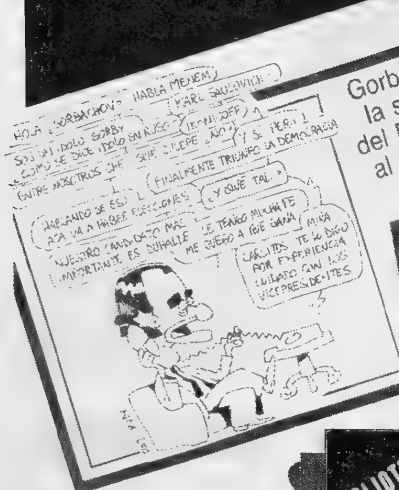 HOLA ¿GORBACHOV? HABLA MENEM
SOS UN IDOLO GORBY
COMO SE DICE IDOLO EN RUSO
ENTRE NOSOTROS CHE
QUE
¿NO?
Y SI, PERO
FINALMENTE TRIUNFO LA DEMOCRACIA
HABLANDO DE ESO
ACA VA A HABER ELECCIONES
¿Y QUÉ TAL?
NUESTRO CANDIDATO MAS
IMPORTANTE ES DUHALDE
LE TENGO MUCHA FE
ME JUEGO A QUE GANA
MIRA
CARLITOS TE LO DIGO
POR EXPERIENCIA
CUIDADO CON LOS
VICEPRESIDENTES
Gorb
la s
del
al